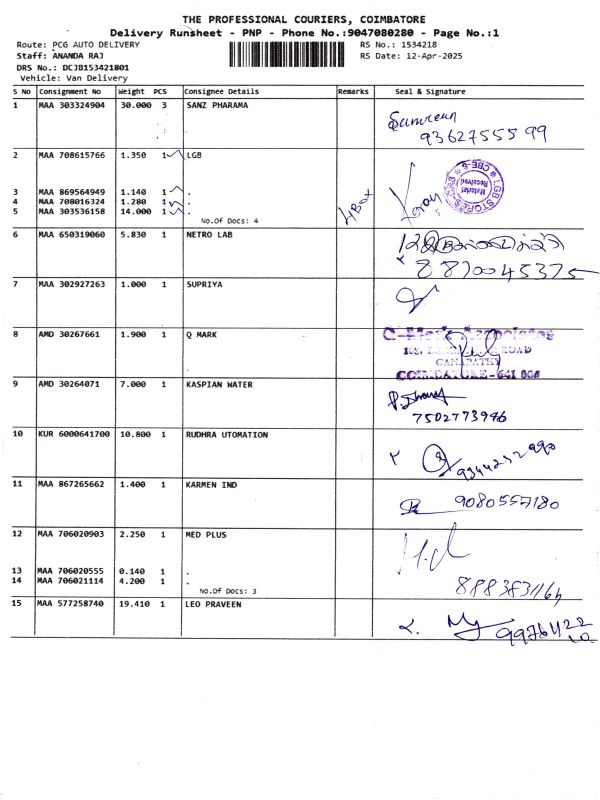 THE PROFESSIONAL COURIERS, COIMBATORE
Delivery Runsheet - PNP - Phone No.:9047080280 - Page No.:1
Route: PCG AUTO DELIVERY RS No.: 1534218
Staff: ANANDA RAJ RS Date: 12-Apr-2025
DRS No.: DCJB153421801
Vehicle: Van Delivery
S No Consignment No Weight PCS Consignee Details Remarks Seal & Signature
1 MAA 303324904 30.000 3 SANZ PHARAMA
9362755599
2 MAA 708615766 1.350 1 LGB
3 MAA 869564949 1.140 1 .
4 MAA 708016324 1.280 1 .
5 MAA 303536158 14.000 1 .
No.Of Docs: 4
4 Box
LGB STORES CBE-6
Material Received
6 MAA 650319060 5.830 1 NETRO LAB
8870045375
7 MAA 302927263 1.000 1 SUPRIYA
8 AMD 30267661 1.900 1 Q MARK
ROAD
GANAPATHY
COIMBATORE - 641 006
9 AMD 30264071 7.000 1 KASPIAN WATER
7502773946
10 KUR 6000641700 10.800 1 RUDHRA UTOMATION
11 MAA 867265662 1.400 1 KARMEN IND
9080557180
12 MAA 706020903 2.250 1 MED PLUS
13 MAA 706020555 0.140 1 .
14 MAA 706021114 4.200 1 .
No.Of Docs: 3
15 MAA 577258740 19.410 1 LEO PRAVEEN